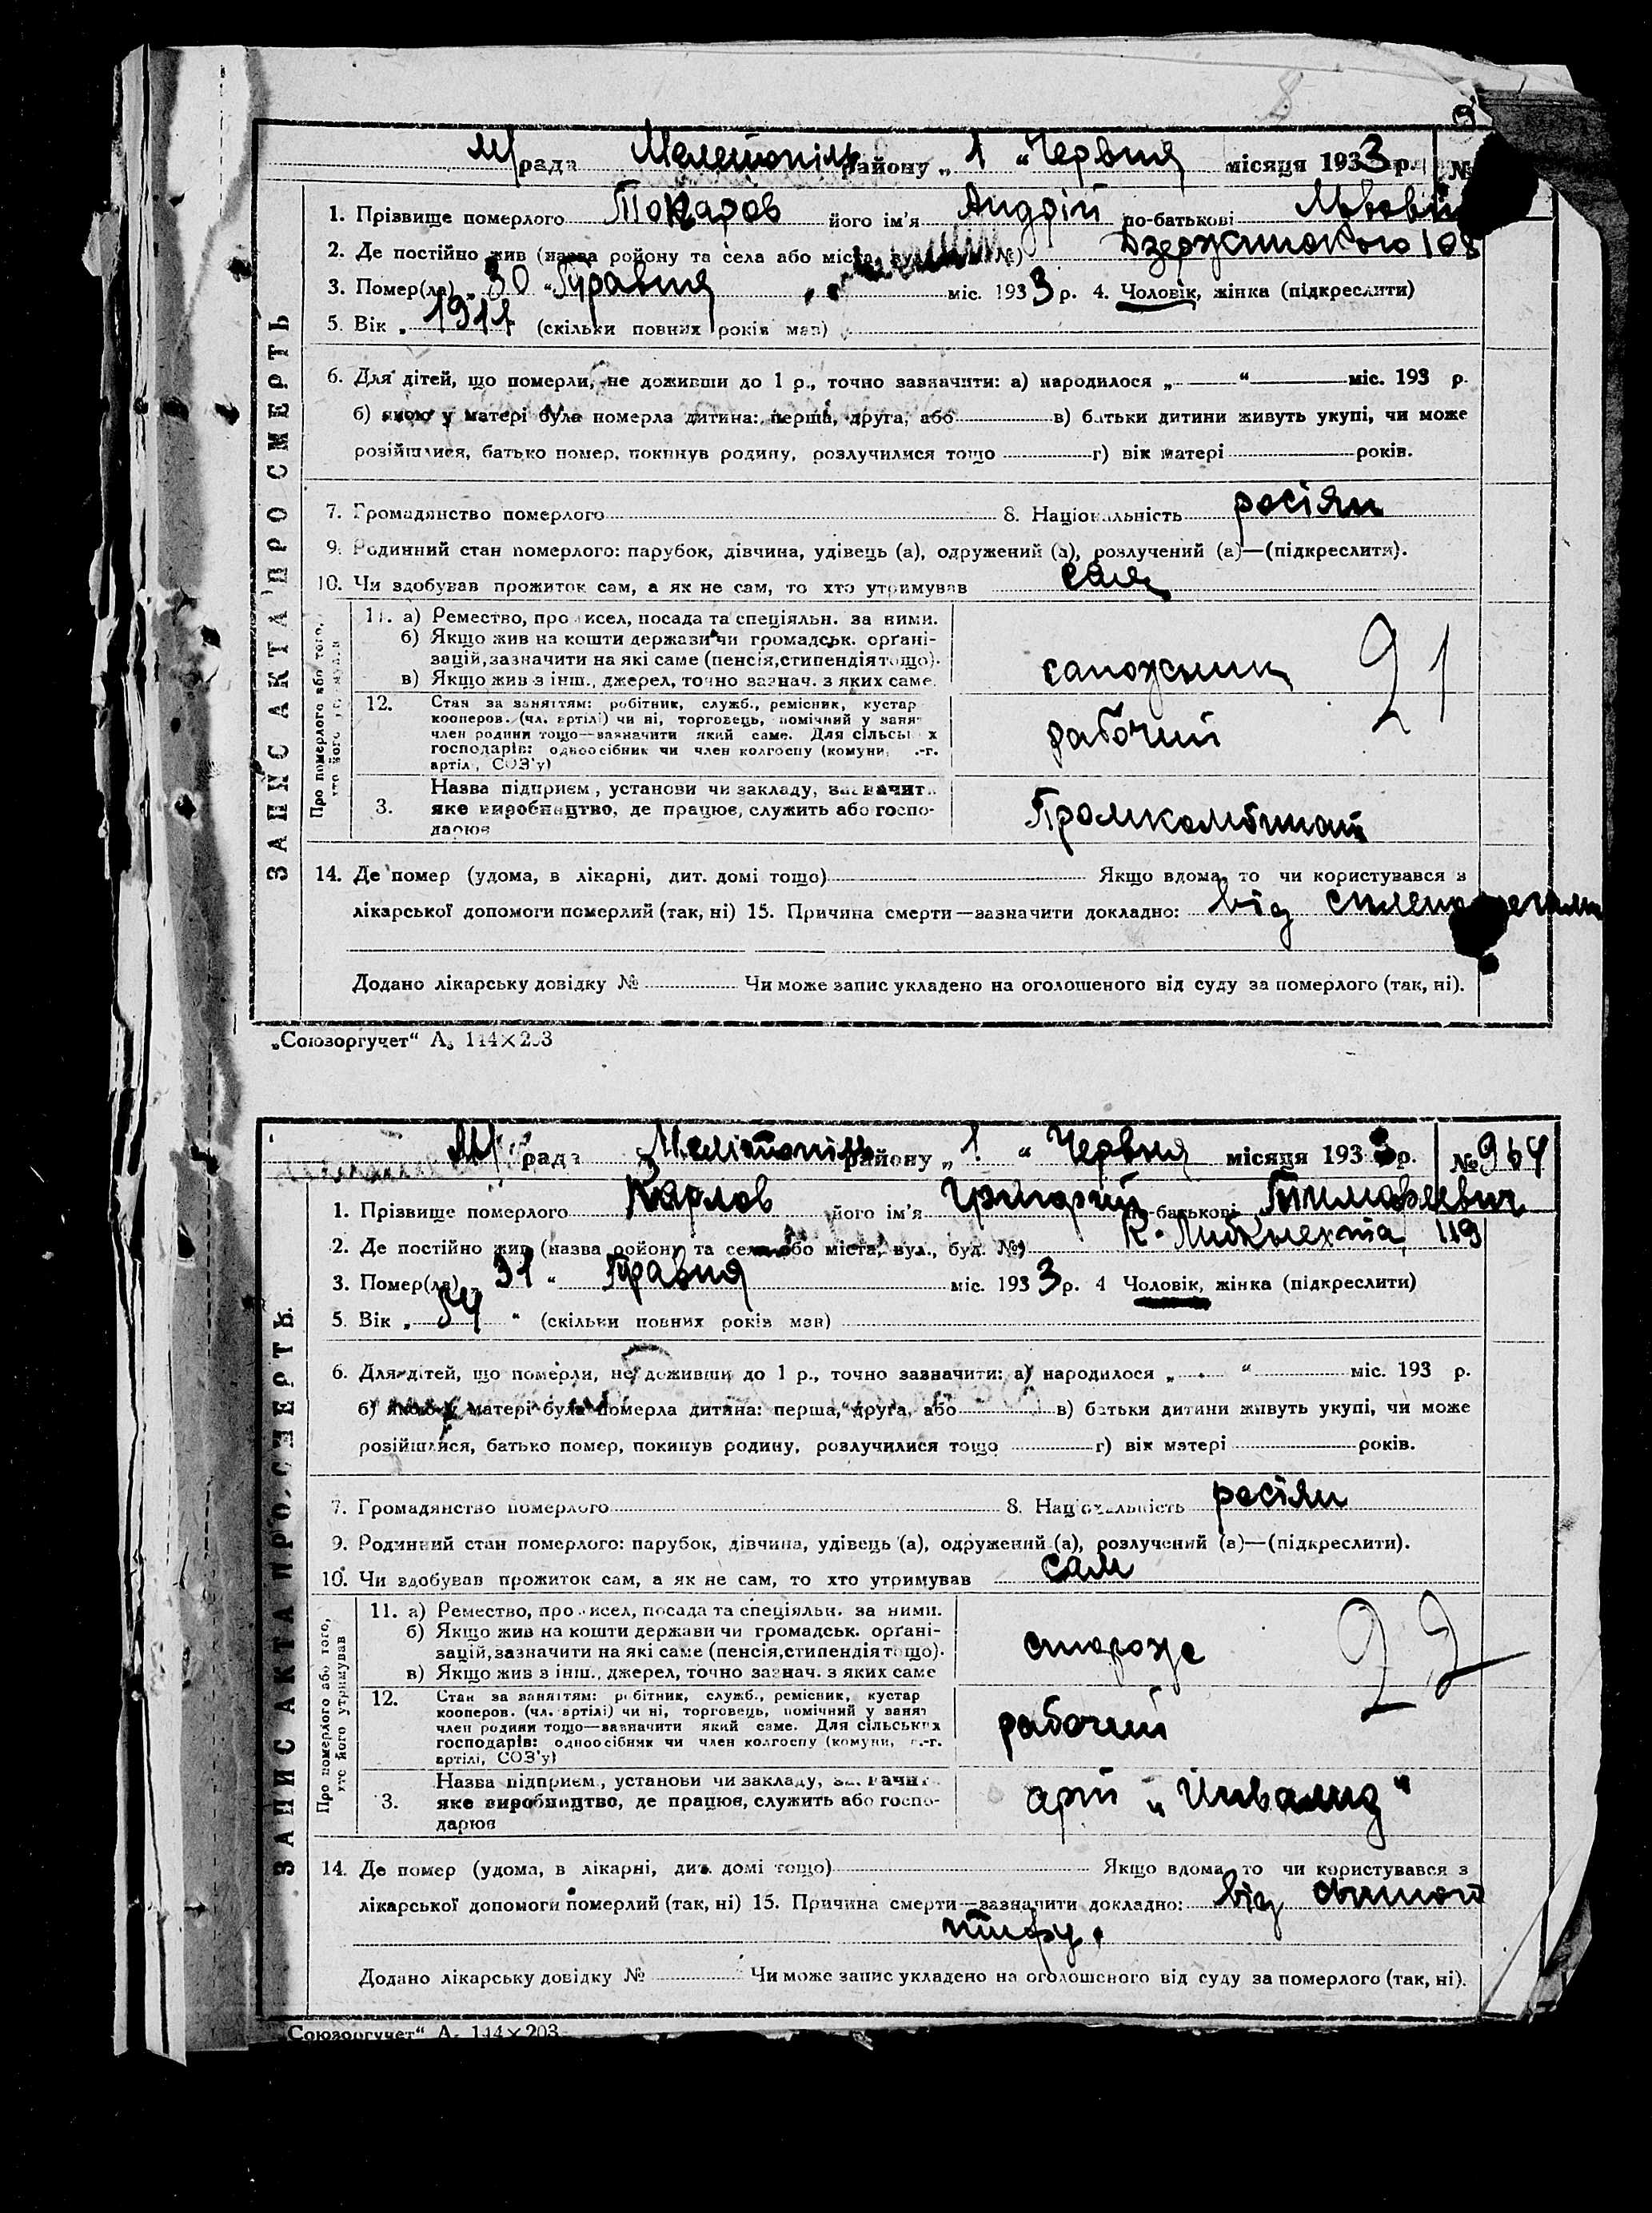 М/рада Мелетопіль району „ 1 “ Червня місяця 1933 р. №
1. Прізвище померлого Токарів його ім'я Андрій по-батькові
2. Де постійно жив (назва ройону та села або міста, №) Дзержинского 108
3. Помер(ла) „ 30 “ Травня міс. 1933 р. 4. Чоловік, жінка (підкреслити)
5. Вік „ 1911 (скільки повних років мав)
6. Для дітей, що померли, не доживши до 1 р., точно зазначити: а) народилося „ “ міс. 193 р.
б) якою у матері була померла дитина: перша, друга, або в) батьки дитини живуть укупі, чи може
розійшлися, батько помер, покинув родину, розлучилися тощо г) вік матері років.
7. Громадянство померлого 8. Національність росіян
9. Родинний стан померлого: парубок, дівчина, удівець (а), одружений (а), розлучений (а)—(підкреслити).
10. Чи здобував прожиток сам, а як не сам, то хто утримував сам
ЗАПИС АКТА ПРО СМЕРТЬ
Про померлого або того,
11. а) Ремество, промисел, посада та спеціяльн. за ними.
б) Якщо жив на кошти держави чи громадськ. орґані-
зацій, зазначити на які саме (пенсія, стипендія тощо).
в) Якщо жив з інш., джерел, точно зазнач. з яких саме.
сапожник 21
12. Стан за заняттям: робітник, служб., ремісник, кустар
кооперов. (чл. артілі) чи ні, торговець, помічний у занят
член родини тощо—зазначити який саме. Для сільських
господарів: одноосібник чи член колгоспу (комуни, с.-г.
артілі, СОЗ'у)
рабочий
3. Назва підприєм, установи чи закладу, зазначити
яке виробництво, де працює, служить або госпо-
дарює
Промкомбинат
14. Де помер (удома, в лікарні, дит. домі тощо) Якщо вдома, то чи користувався з
лікарської допомоги померлий (так, ні) 15. Причина смерти—зазначити докладно: від
Додано лікарську довідку № Чи може запис укладено на оголошеного від суду за померлого (так, ні).
„Союзоргучет“ А₅ 144×203
М/рада Мелітопіль району „ 1 “ Червня місяця 1933 р. № 964
1. Прізвище померлого Карлов його ім'я Григорий по-батькові Тимофеевич
2. Де постійно жив (назва ройону та села або міста, вул., буд. №) К. Либкнехта 119
3. Помер(ла) 31 “ Травня міс. 1933 р. 4 Чоловік, жінка (підкреслити)
5. Вік „ 54 “ (скільки повних років мав)
6. Для дітей, що померли, не доживши до 1 р., точно зазначити: а) народилося „ “ міс. 193 р.
б) якою у матері була померла дитина: перша, друга, або в) батьки дитини живуть укупі, чи може
розійшлися, батько помер, покинув родину, розлучилися тощо г) вік матері років.
7. Громадянство померлого 8. Національність росіян
9. Родинний стан померлого: парубок, дівчина, удівець (а), одружений (а), розлучений (а)—(підкреслити).
10. Чи здобував прожиток сам, а як не сам, то хто утримував сам
ЗАПИС АКТА ПРО СМЕРТЬ
Про померлого або того,
хто його утримував
11. а) Ремество, промисел, посада та спеціяльн. за ними.
б) Якщо жив на кошти держави чи громадськ. орґані-
зацій, зазначити на які саме (пенсія, стипендія тощо).
в) Якщо жив з інш., джерел, точно зазнач. з яких саме
сторож 22
12. Стан за заняттям: робітник, служб., ремісник, кустар
кооперов. (чл. артілі) чи ні, торговець, помічний у занят
член родини тощо—зазначити який саме. Для сільських
господарів: одноосібник чи член колгоспу (комуни, с.-г.
артілі, СОЗ'у)
рабочий
3. Назва підприєм, установи чи закладу, зазначит
яке виробництво, де працює, служить або госпо-
дарює
арт „Инвалид“
14. Де помер (удома, в лікарні, дит. домі тощо) Якщо вдома, то чи користувався з
лікарської допомоги померлий (так, ні) 15. Причина смерти—зазначити докладно: від
тифу.
Додано лікарську довідку № Чи може запис укладено на оголошеного від суду за померлого (так, ні).
„Союзоргучет“ А₅ 144×203